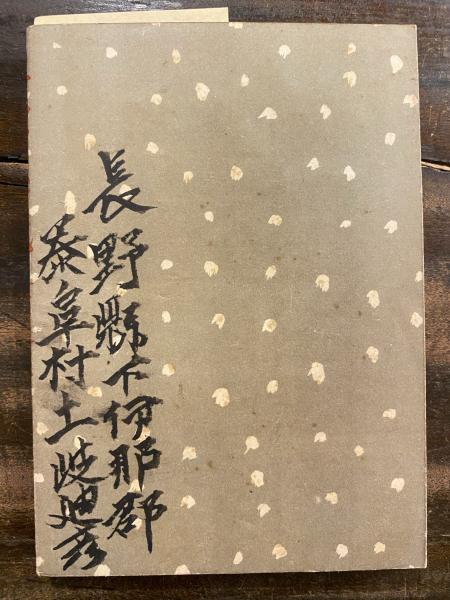 長野縣下伊那郡
泰阜村土岐迪彦